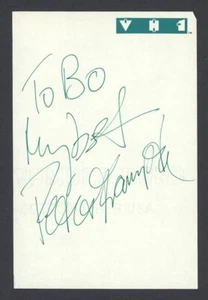 VH1
To Bo
My best
Peter Frampton